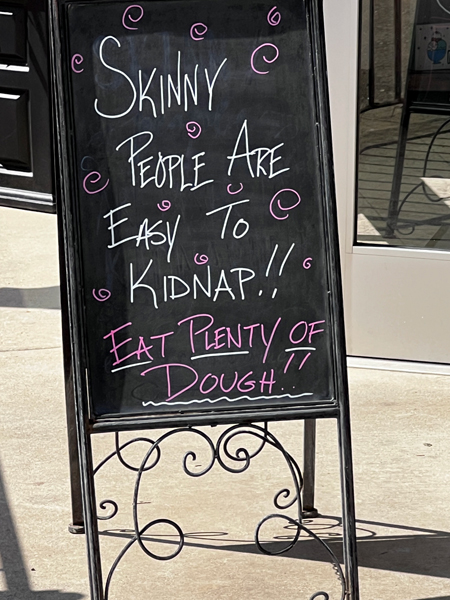 SKINNY
PEOPLE ARE
EASY TO
KIDNAP!!
EAT PLENTY OF
DOUGH!!